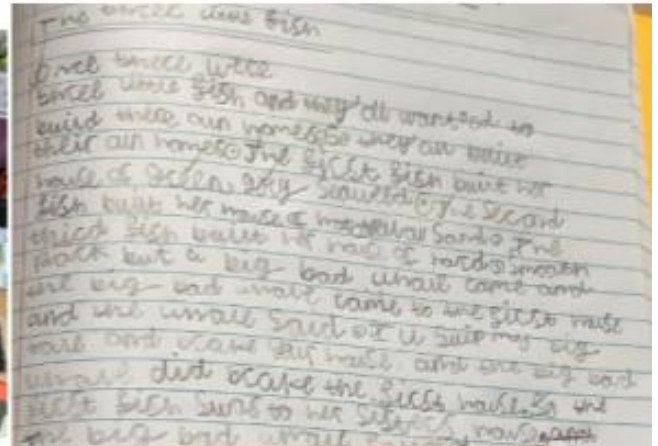 The three little fish
Once there were
three little fish and they all wanted to
build there own homes So they all built
their own homes The first fish built her
house of green, grey seaweed The Second
fish built her house of Sand The
third fish built her house of hard smooth
rock but a big bad whale came and
the big bad whale came to the first house
and the whale Said if U my big
tail and your house and the big bad
whale did the first house. So the
first fish to her house and
the big bad whale